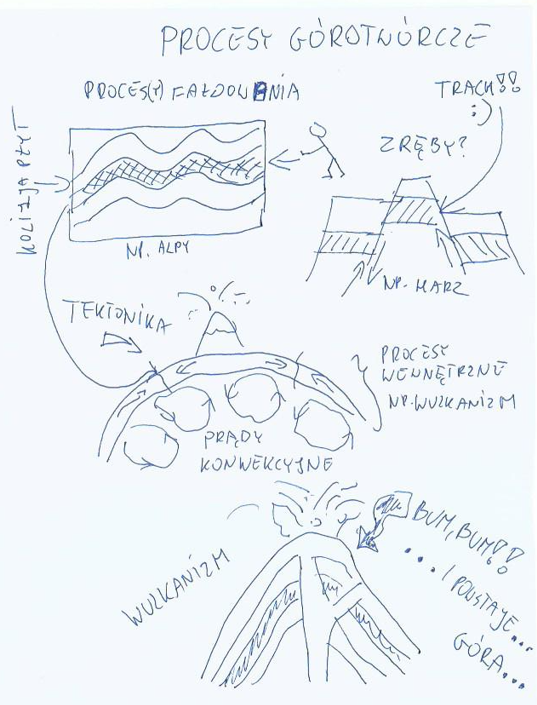 PROCESY GÓROTWÓRCZE
PROCES(Y) FAŁDOWANIA
TRACH!!
:)
KOLIZJA PŁYT
ZRĘBY?
NP. ALPY
NP. HARZ
TEKTONIKA
PROCESY
WEWNĘTRZNE
NP. WULKANIZM
PRĄDY
KONWEKCYJNE
WULKANIZM
BUM, BUM!!
... I POWSTAJE...
GÓRA...